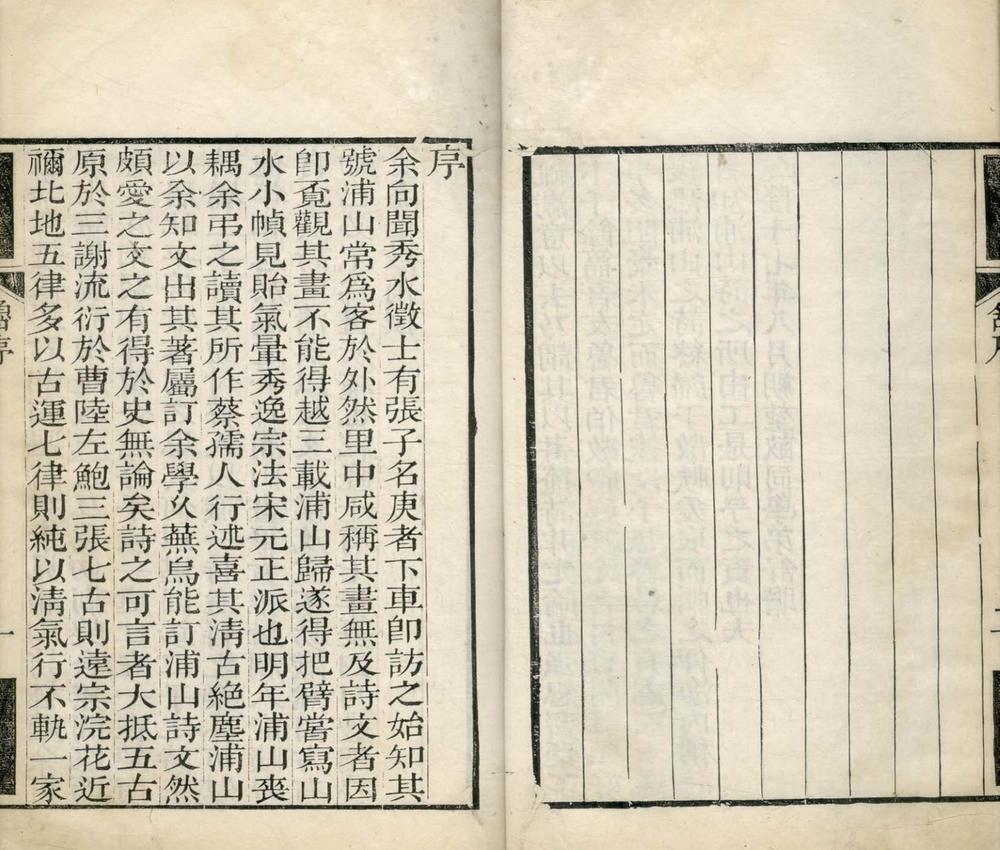 序
余向聞秀水徵士有張子名庚者下車卽訪之始知其
號浦山常爲客於外然里中咸稱其畫無及詩文者因
卽覔觀其畫不能得越三載浦山歸遂得把臂嘗寫山
水小幀見貽氣暈秀逸宗法宋元正派也明年浦山喪
耦余弔之讀其所作蔡孺人行述喜其淸古絶塵浦山
以余知文出其著屬訂余學久蕪烏能訂浦山詩文然
頗愛之文之有得於史無論矣詩之可言者大抵五古
原於三謝流衍於曹陸左鮑三張七古則遠宗浣花近
禰北地五律多以古運七律則純以淸氣行不軌一家
魯序
一